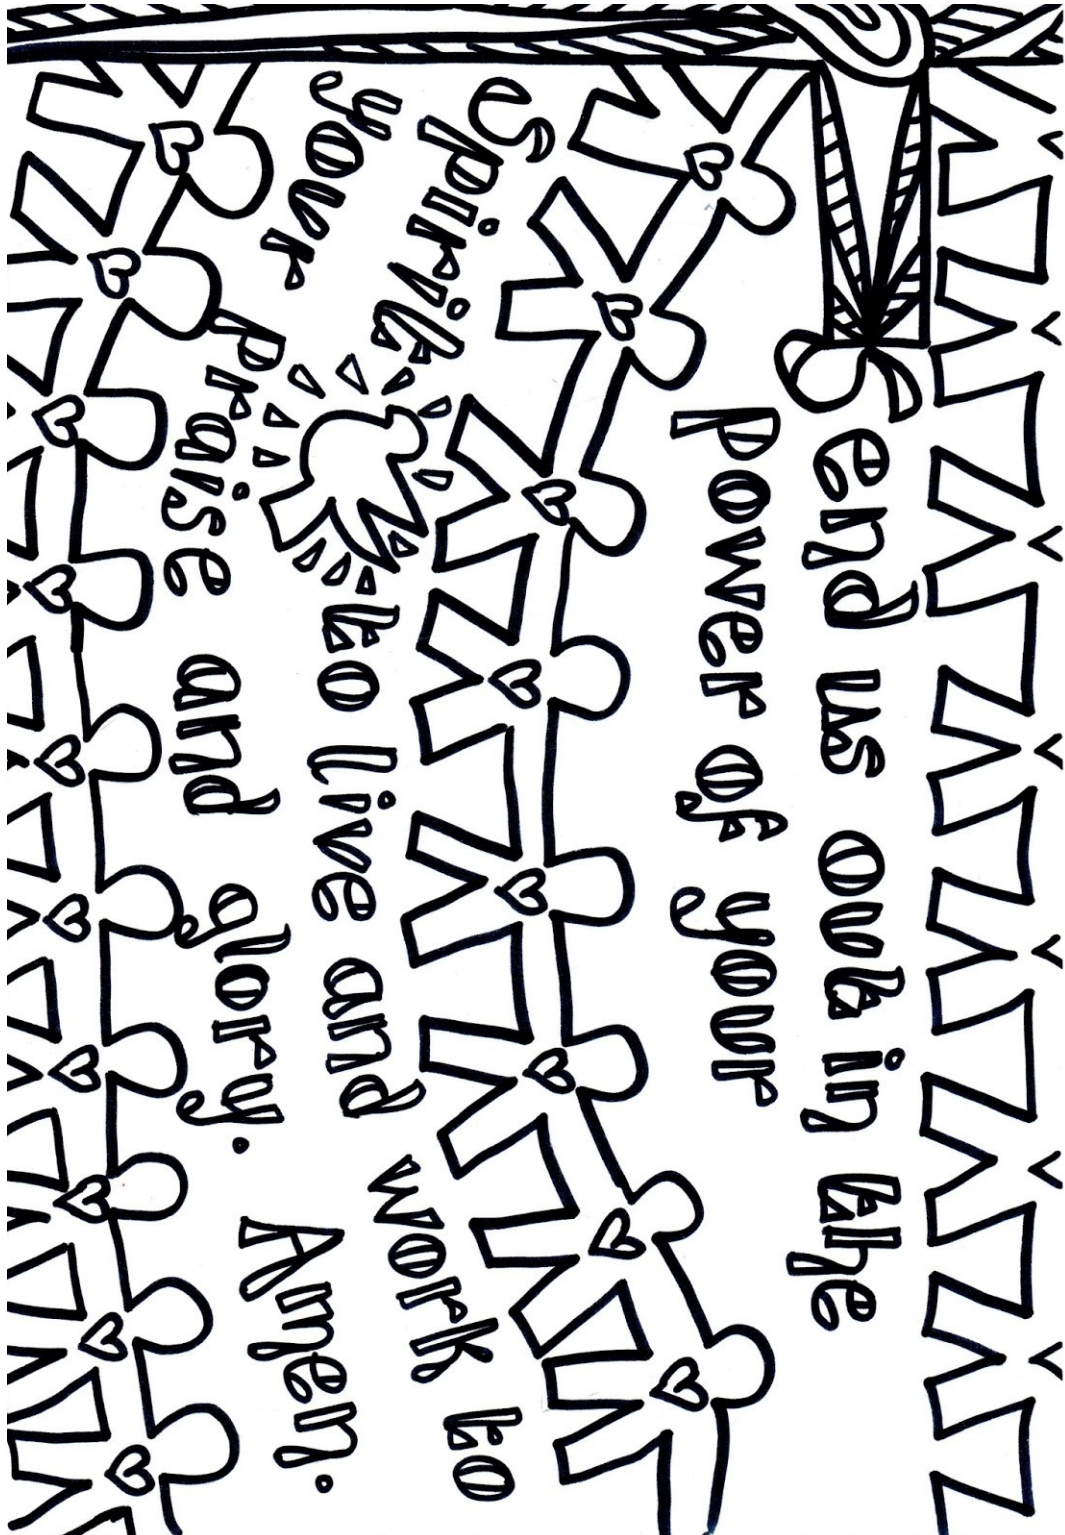 end us out in the
power of your
Spirit to live and work to
your praise and glory. Amen.